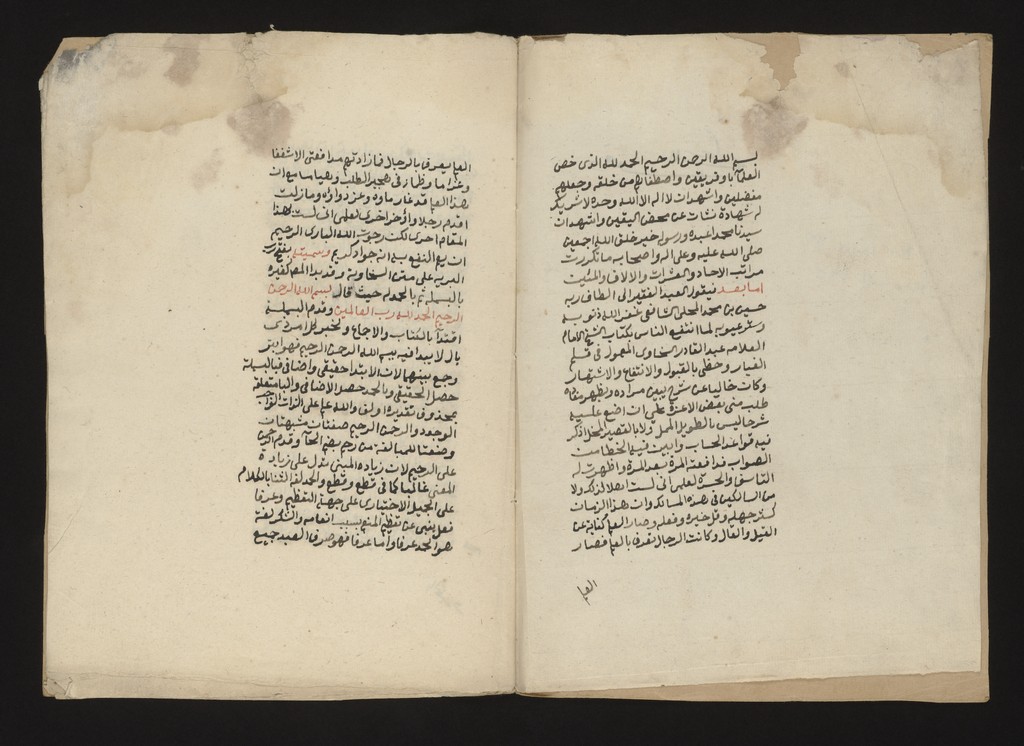 بسم الله الرحمن الرحيم الحمد لله الذي خص
العلما وفريقين واصطفاهم من خلقه وجعلهم
مفضلين واشهد ان لا اله الا الله وحده لا شريك
له شهادة نشات عن محض اليقين واشهد ان
سيدنا محمد اعبده ورسوله خير خلق الله اجمعين
صلى الله عليه وعلى اله واصحابه ما تكررت
مراتب الاحاد والعشرات والالاف والمئين
اما بعد فيقول العبد الفقير الى الطاف ربه
حسين بن محمد المحلى الشافعي غفر الله ذنوبه
وستر عيوبه لما انتفع الناس بكتاب الشيخ الامام
العلامه عبد القادر السخاوى المعمول في قلم
الغبار وحظى بالقبول والانتفاع والاشتهار
وكان خاليا عن شرح يبين مراده ويظهر
طلب منى بعض الاعزة على ان اضع عليه
شرحا ليس بالطويل الممل ولا بالقصير المخل اذكر
فيه قواعد الحساب وابين فيه الخطا من
الصواب فدافعته المرة بعد المرة واظهرت له
التاسف والحسرة لعلمى انى لست اهلا لذلك ولا
من السالكين في هذه المسالك وان هذا الزمان
كثر جهله وقل خيره وفعله وصار العلم كناية عن
القيل والقال وكانت الرجال تعرف بالعلم فصار
العلم
العلم يعرف بالرجال فما زادتهم مدافعتى الا شغفا
وغراما وظمأ فى هجير الطلب وهياما مع ان
هذا العلم قد غار ماؤه وعز دواؤه وما زلت
اقدم رجلا واؤخر اخرى لعلمى انى لست لهذا
المقام احرى لكن رجوت الله البارى الرحيم
ان يقع النفع به انه جواد كريم وسميته بفتح رب
البريه على متن السخاوية وقد بدا المص كغيره
بالبسملة ثم بالحمدلة حيث قال بسم الله الرحمن
الرحيم الحمد لله رب العالمين وقدم البسملة
اقتدا بالكتاب والاجماع ولخبر كل امر ذى
بال لا يبدا فيه ببسم الله الرحمن الرحيم فهو ابتر
وجمع بينهما لان الابتدا حقيقى واضافى فبالبسملة
حصل الحقيقى وبالحمد حصل الاضافى والبا متعلقة
بمحذوف تقديره اولف والله علم على الذات الواجب
الوجود والرحمن الرحيم صفتان مشبهتان
وضعتا للمبالغة من رحم بضم الحا وقدم الرحمن
على الرحيم لان زيادة المبنى تدل على زيادة
المعنى غالبا كما فى قطع وقطع والحمد لغة الثنا بالكلام
على الجميل الاختيارى على جهة التعظيم وعرفا
فعل ينبى عن تعظيم المنعم بسبب انعامه والشكر لغة
هو الحمد عرفا واما عرفا فهو صرف العبد جميع